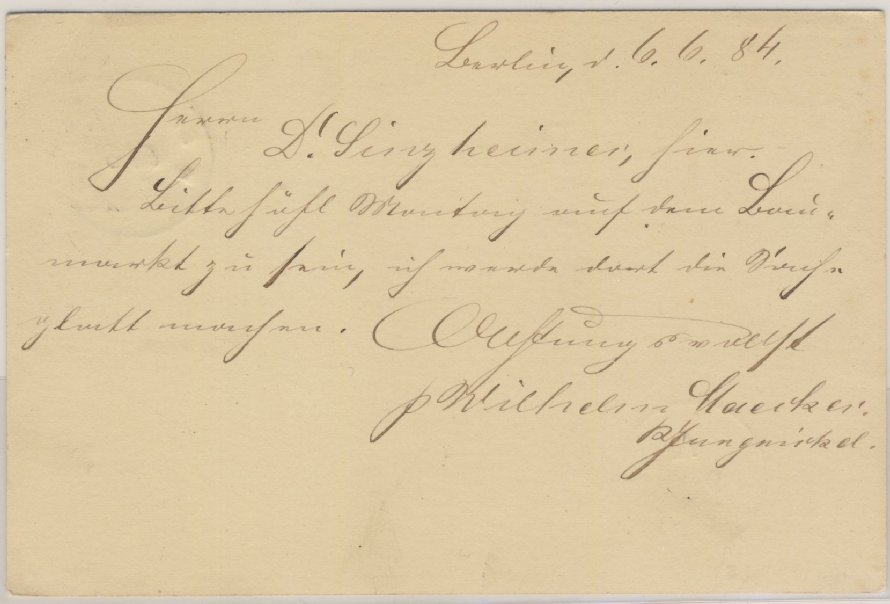 Berlin, d. 6. 6. 84.
Herrn
Dr. Sinzheimer, hier.
Bitte Montag auf dem Bau-
markt zu sein, ich werde dort die Sache
glatt machen. Achtungsvollst
p Wilhelm Maecker.